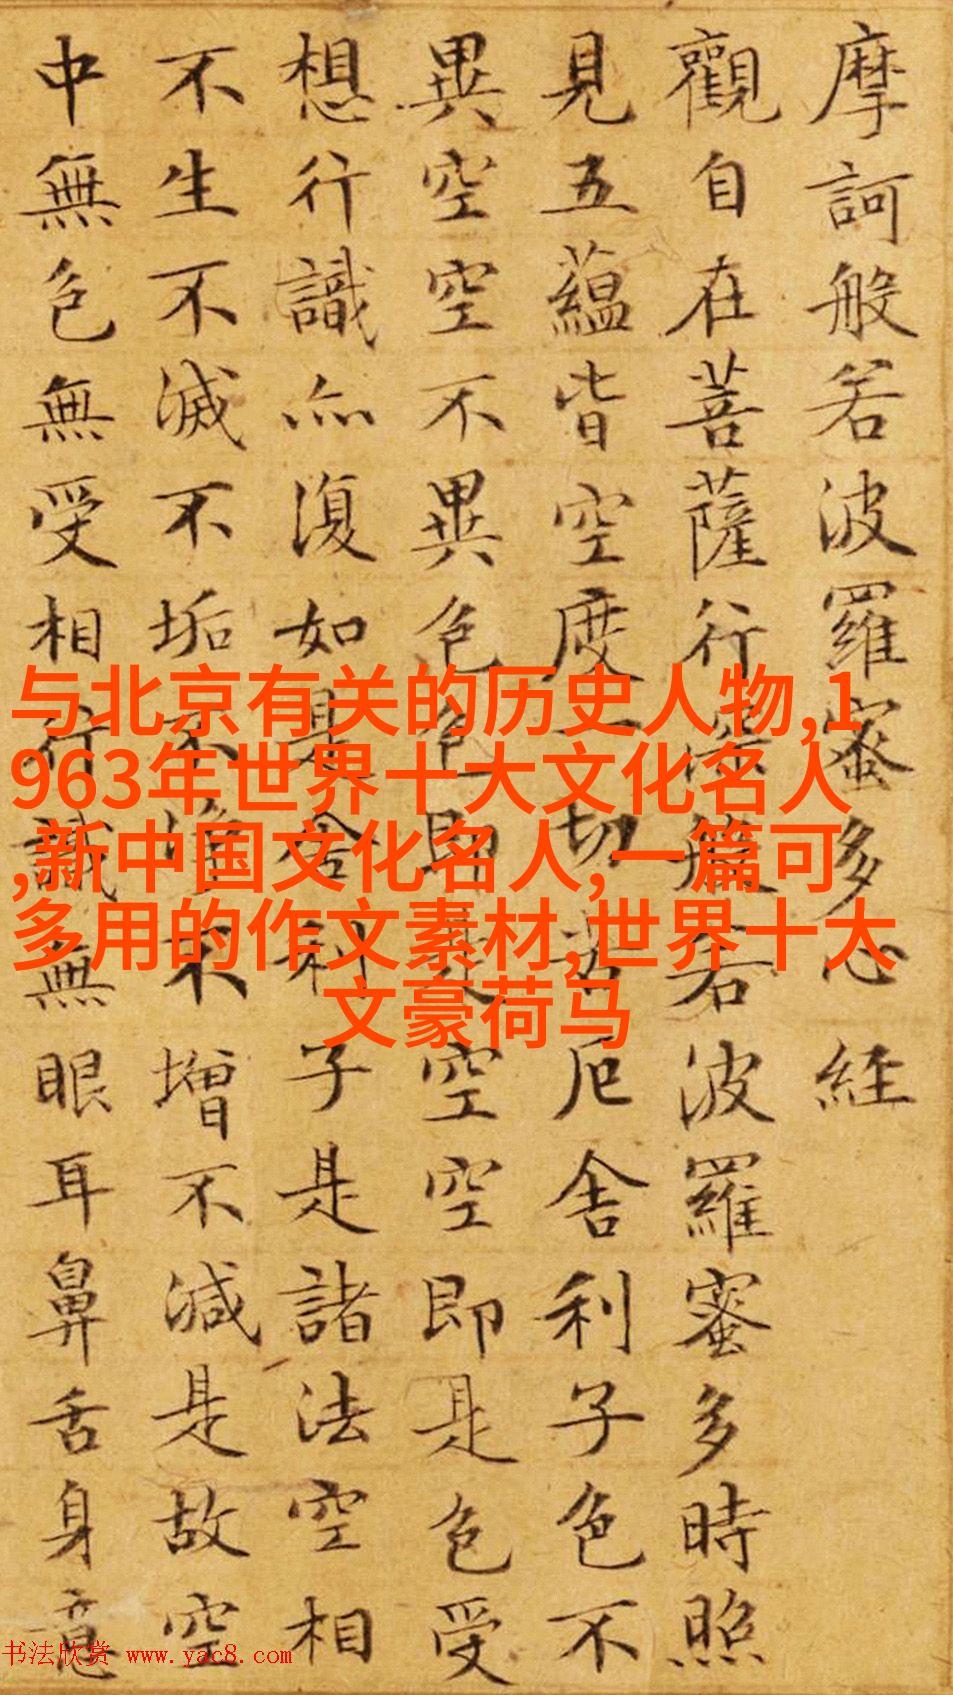 摩訶般若波羅蜜多心經
觀自在菩薩行深般若波羅蜜多時照
見五蘊皆空度一切苦厄舍利子色不
異空空不異色色即是空空即是色受
想行識亦復如是舍利子是諸法空相
不生不滅不垢不淨不增不減是故空
中無色無受相行識無眼耳鼻舌身意
与北京有关的历史人物,1
963年世界十大文化名人
,新中国文化名人,一篇可
多用的作文素材,世界十大
文豪荷马
书法欣赏 www.yac8.com